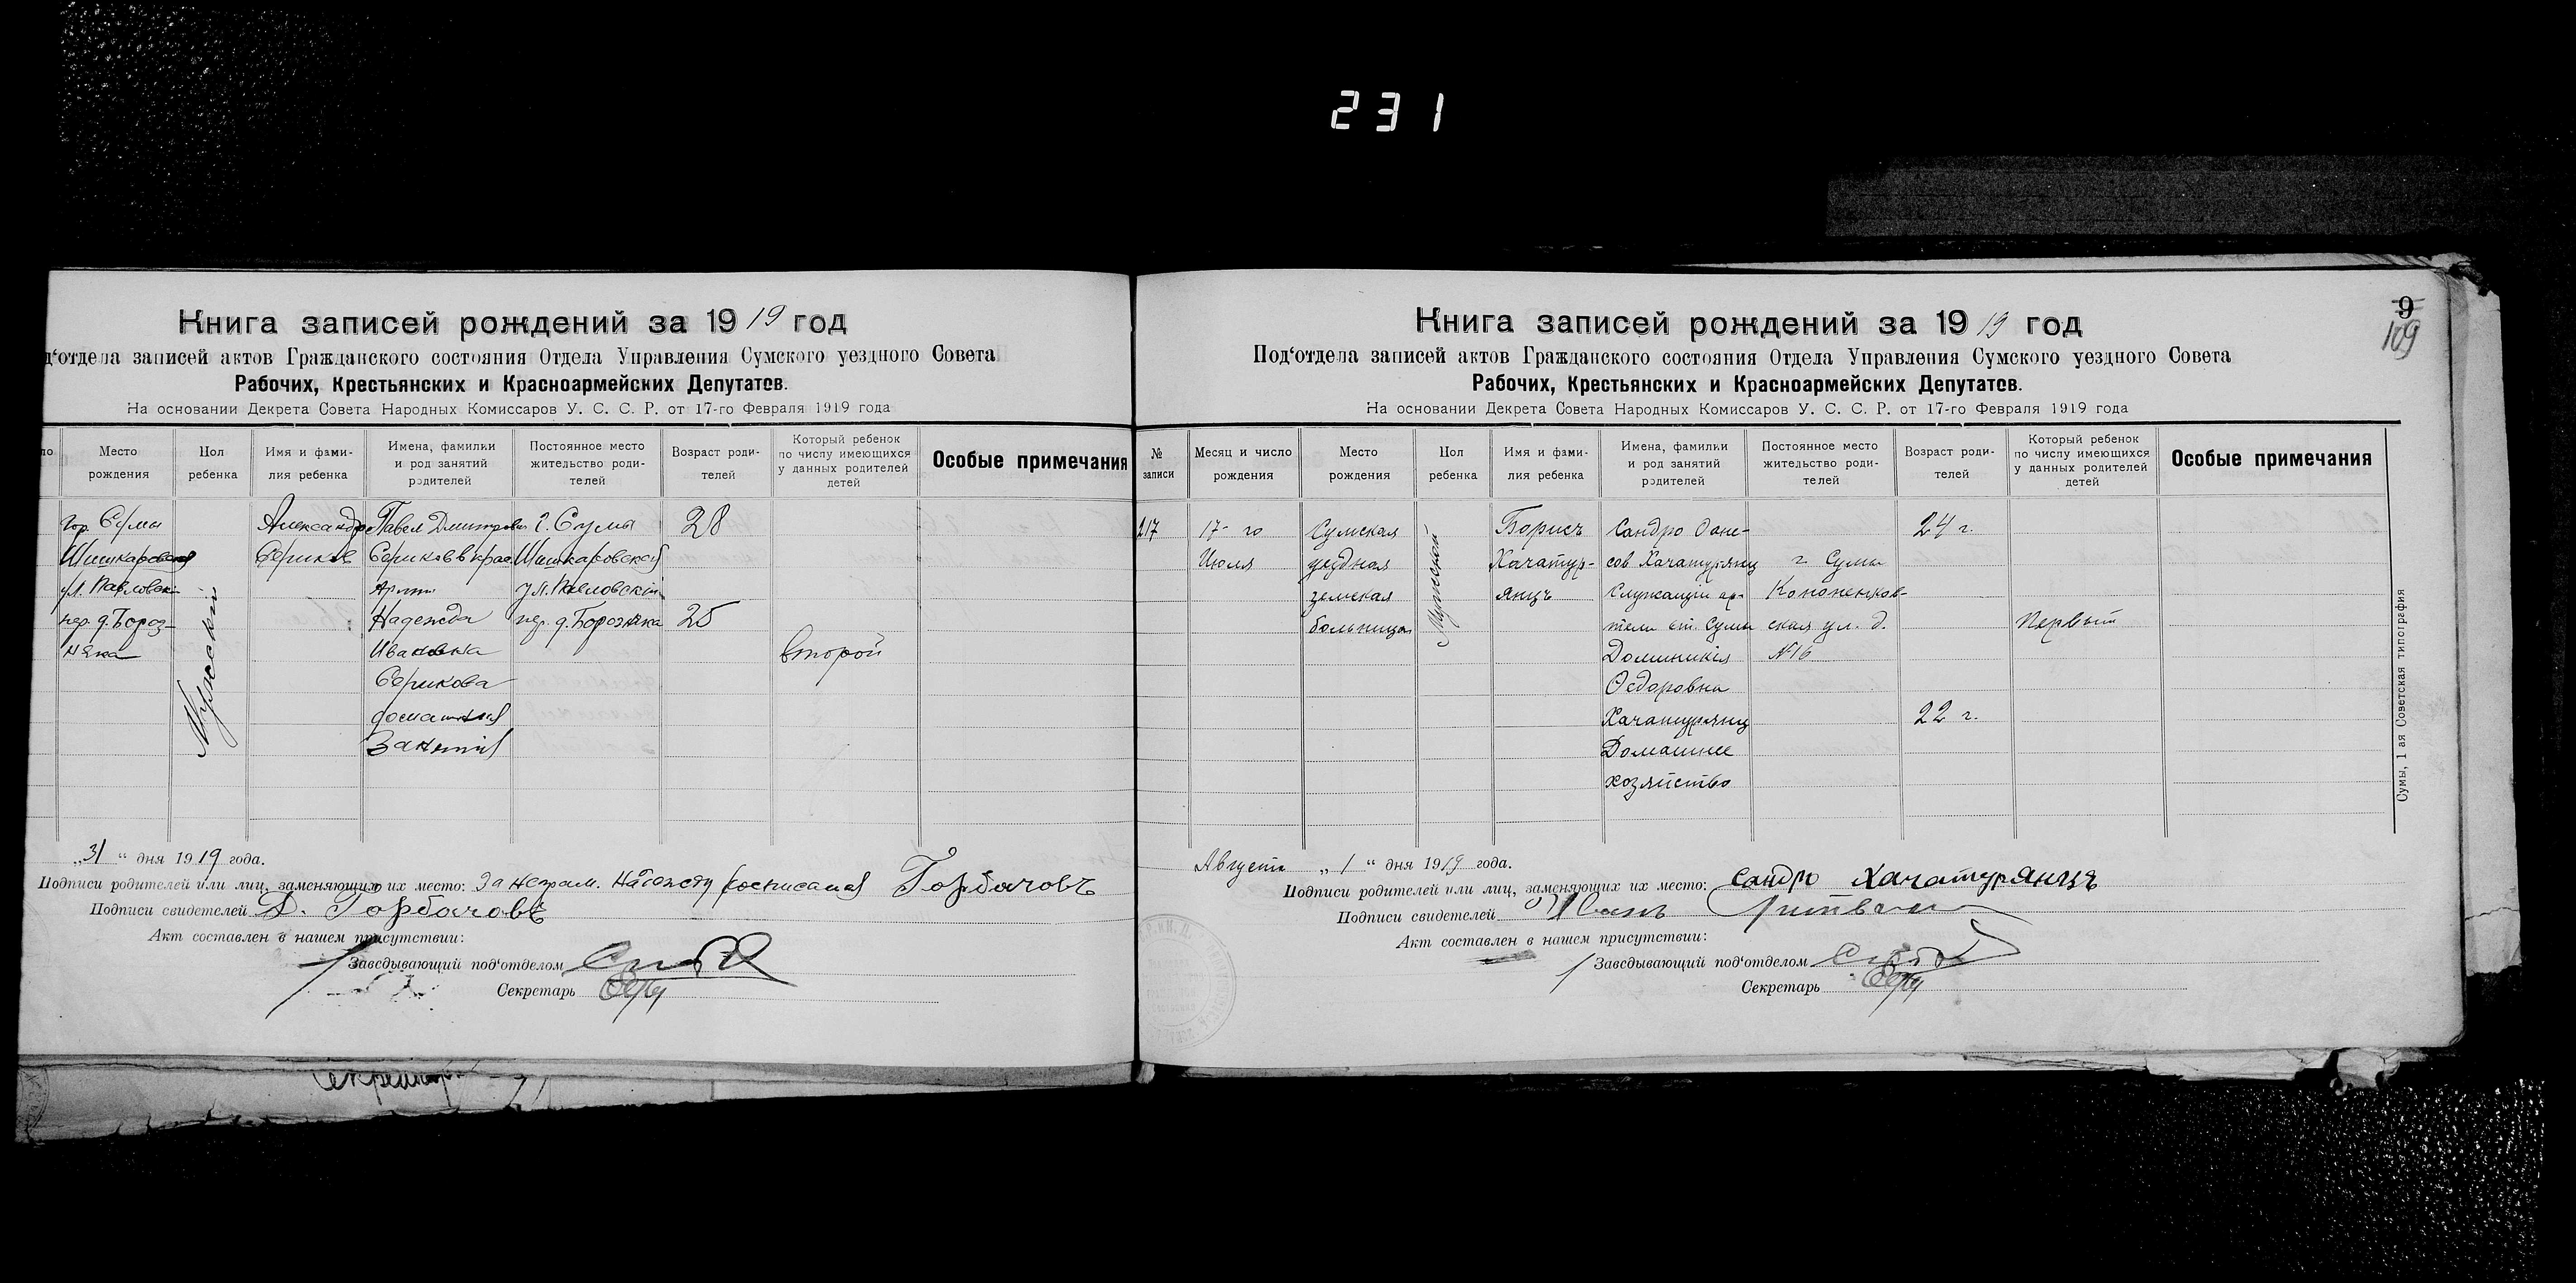 231
Книга записей рождений за 1919 год
д'отдела записей актов Гражданского состояния Отдела Управления Сумского уездного Совета
Рабочих, Крестьянских и Красноармейских Депутатов.
На основании Декрета Совета Народных Комиссаров У. С. С. Р. от 17-го Февраля 1919 года
Место рождения
Пол ребенка
Имя и фами-
лия ребенка
Имена, фамилии
и род занятий
родителей
Постоянное место
жительство роди-
телей
Возраст роди-
телей
Который ребенок
по числу имеющихся
у данных родителей
детей
Особые примечания
гор. Сумы
ул. Павловск
пер. д. Бороз-
няка
Мужской
Александр
Сериков
Павел Дмитрович
Сериков в крас
Армии
Надежда
Ивановна
Серикова
домашния
Занятия
г. Сумы
Шишкаровской
ул. Павловский
пер. д. Борозняка
28
25
второй
„31“ дня 1919 года.
Подписи родителей или лиц, заменяющих их место: За неграм. Надежду росписался Горбачовъ
Подписи свидетелей Д. Горбачовъ
Акт составлен в нашем присутствии:
Заведывающий под'отделом
Секретарь
Секретар
9
109
Книга записей рождений за 1919 год
Под'отдела записей актов Гражданского состояния Отдела Управления Сумского уездного Совета
Рабочих, Крестьянских и Красноармейских Депутатов.
На основании Декрета Совета Народных Комиссаров У. С. С. Р. от 17-го Февраля 1919 года
№
записи
Месяц и число
рождения
Место
рождения
Пол
ребенка
Имя и фами-
лия ребенка
Имена, фамилии
и род занятий
родителей
Постоянное место
жительство роди-
телей
Возраст роди-
телей
Который ребенок
по числу имеющихся
у данных родителей
детей
Особые примечания
217
17-го
Июля
Сумская
уездная
земская
больница
Мужской
Борисъ
Хачатур-
янцъ
Сандро Оане-
сов Хачатурянц
Служащий ар-
тели ст. Сумы
Доминикия
Федоровна
Хачатурянц
Домашнее
хозяйство
г Сумы
Кононенков-
ская ул. д.
№16
24 г.
22 г.
Первый
Августа „1“ дня 1919 года.
Подписи родителей или лиц, заменяющих их место: Сандро Хачатурянцъ
Подписи свидетелей Иванъ
Акт составлен в нашем присутствии:
Заведывающий под'отделом
Секретарь
Сумы, 1 ая Советская типография